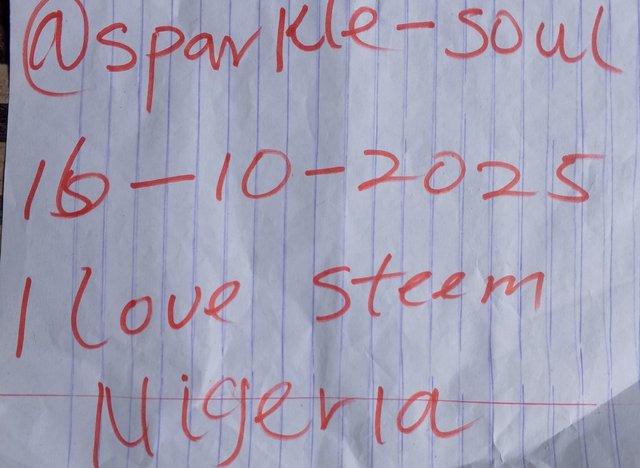 @sparkle-soul
16-10-2025
I love steem
Nigeria